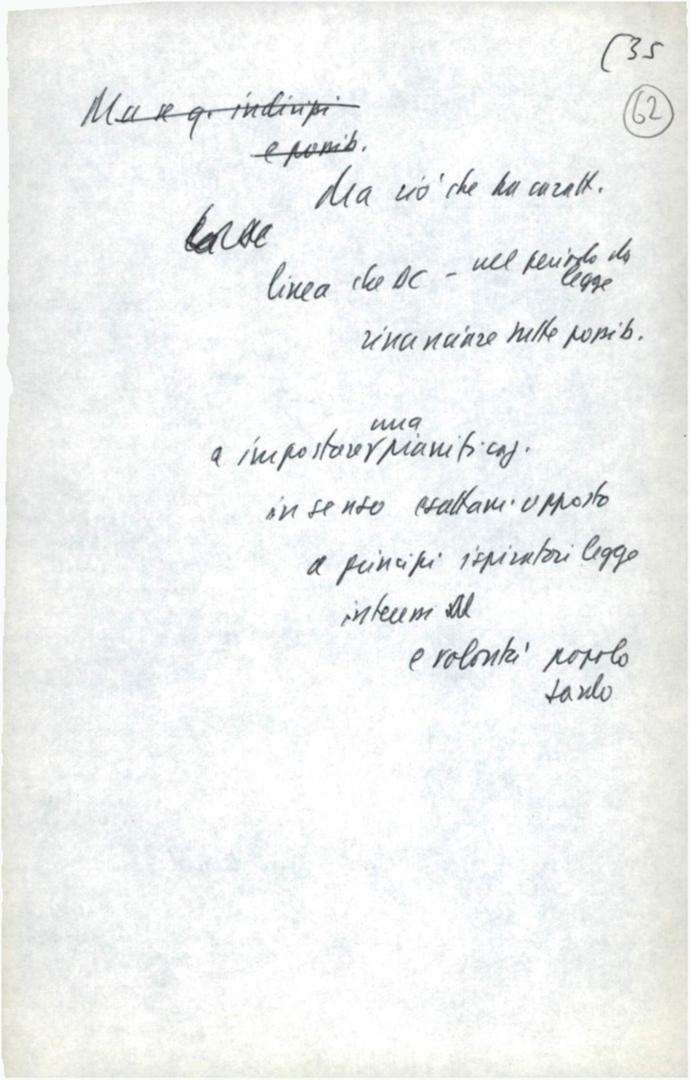 (35
62
Ma se q. indirizzi
e possib.
Ma ciò che ha caratt.
linea che DC - nel periodo da legge
rinunciare tutte possib.
a impostare una pianificaz.
in senso esattam. opposto
a principi ispiratori legge
e volontà popolo
sardo